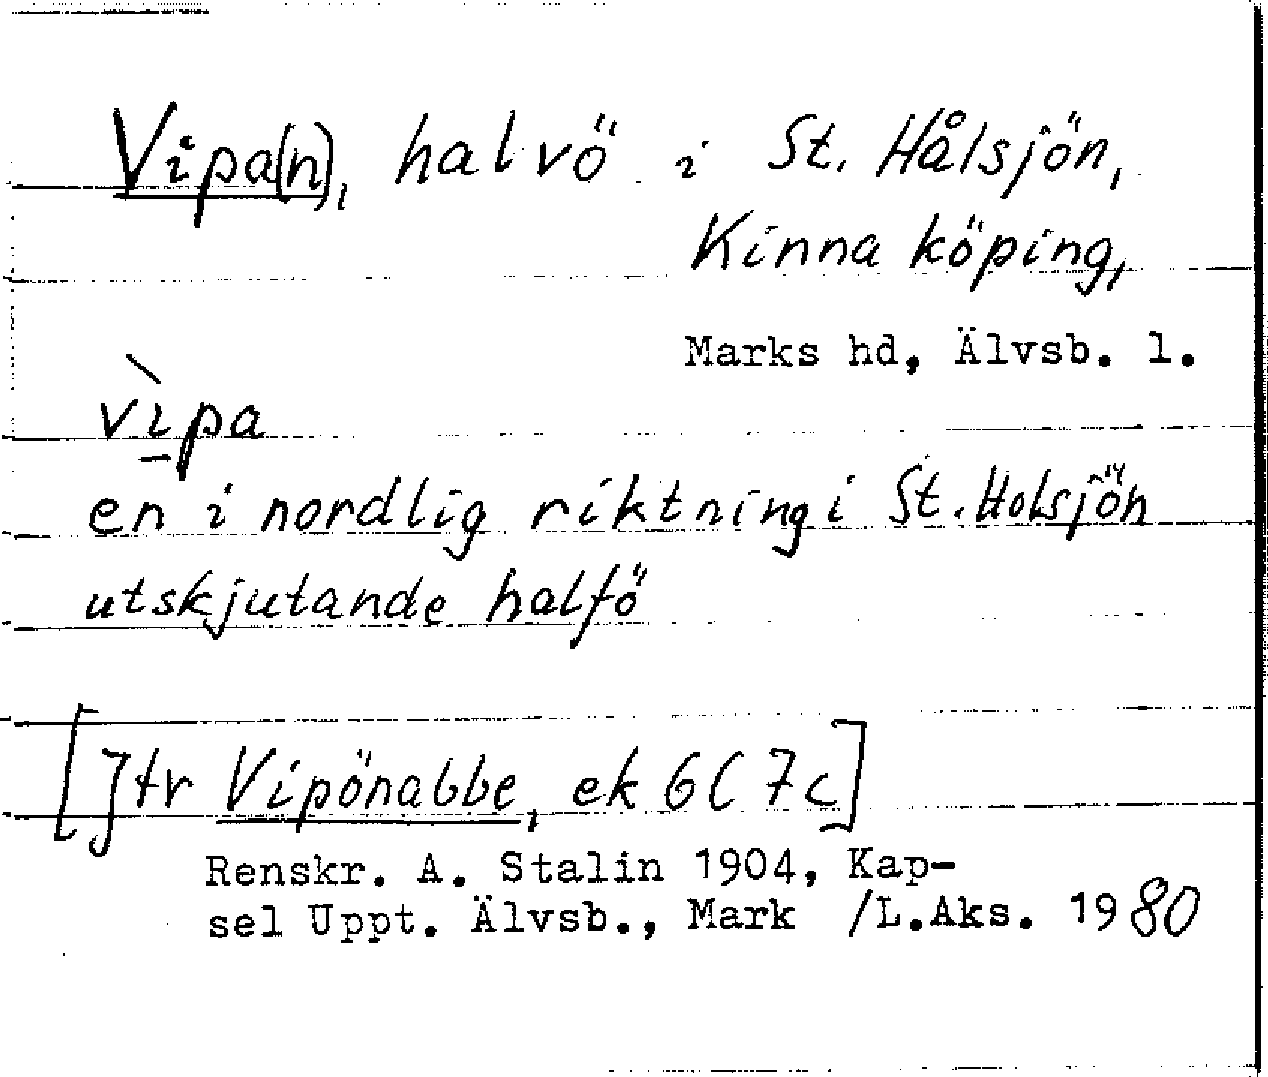 Vipa(n), halvö i St. Hålsjön,
Kinna köping,
Marks hd, Älvsb. l.
vìpa
en i nordlig riktning i St. Holsjön
utskjutande halfö
[Jfr Vipönabbe, ek 6C 7c]
Renskr. A. Stalin 1904, Kap-
sel Uppt. Älvsb., Mark /L.Aks. 1980